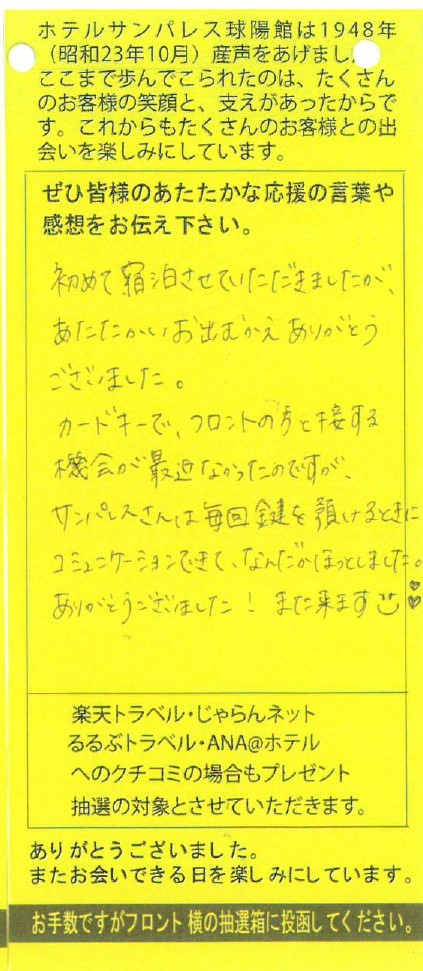 ホテルサンパレス球陽館は1948年
（昭和23年10月）産声をあげまし
ここまで歩んでこられたのは、たくさん
のお客様の笑顔と、支えがあったからで
す。これからもたくさんのお客様との出
会いを楽しみにしています。
ぜひ皆様のあたたかな応援の言葉や
感想をお伝え下さい。
初めて宿泊させていただきましたが、
あたたかいお出むかえありがとう
ございました。
カードキーで、フロントの方と接する
機会が最近なかったのですが、
サンパレスさんは毎回鍵を預けるときに
コミュニケーションできて、なんだかほっとしました。
ありがとうございました！また来ます
楽天トラベル・じゃらんネット
るるぶトラベル・ANA@ホテル
へのクチコミの場合もプレゼント
抽選の対象とさせていただきます。
ありがとうございました。
またお会いできる日を楽しみにしています。
お手数ですがフロント横の抽選箱に投函してください。